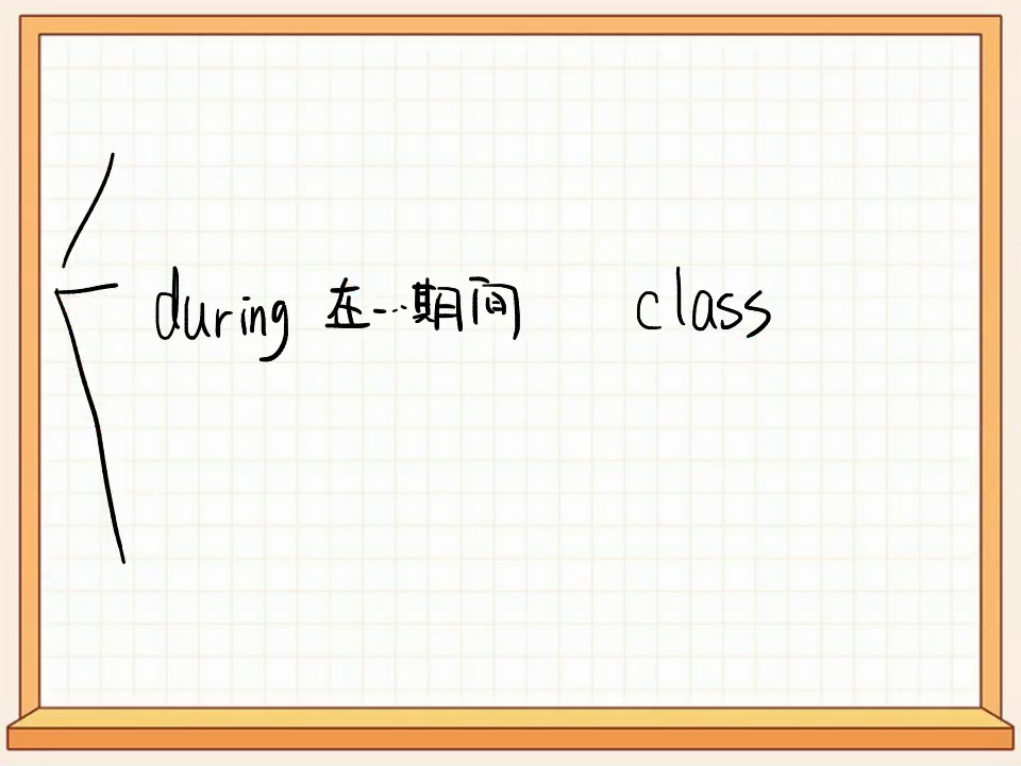 during 在…期间 class